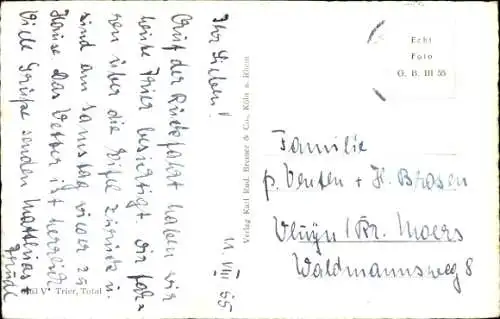 Ihr Lieben!
Auf der Rückfahrt haben wir
heute Trier besichtigt. Wir fahren
über die Eifel zurück u.
sind am Samstag wieder zu
Hause. Das Wetter ist herrlich
Viele Grüße senden Matthias +
Trudl
11. VIII 55
463 V Trier, Total
Verlag Karl Rud. Bremer & Co., Köln a. Rhein
Echt
Foto
G. B. III 55
Familie
p. Venten + H. Brosen
Vluyn / Kr. Moers
Waldmannsweg 8